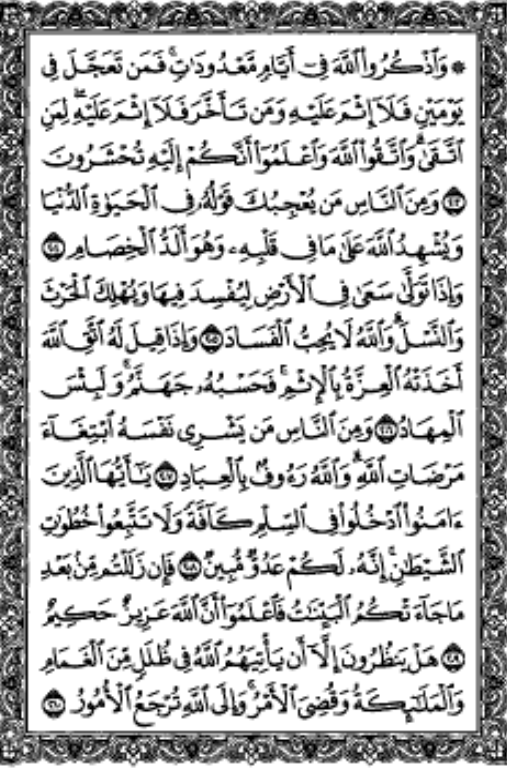 ۞ وَٱذۡكُرُواْ ٱللَّهَ فِيٓ أَيَّامٖ مَّعۡدُودَٰتٖۚ فَمَن تَعَجَّلَ فِي
يَوۡمَيۡنِ فَلَآ إِثۡمَ عَلَيۡهِ وَمَن تَأَخَّرَ فَلَآ إِثۡمَ عَلَيۡهِۖ لِمَنِ
ٱتَّقَىٰۗ وَٱتَّقُواْ ٱللَّهَ وَٱعۡلَمُوٓاْ أَنَّكُمۡ إِلَيۡهِ تُحۡشَرُونَ
٢٠٣ وَمِنَ ٱلنَّاسِ مَن يُعۡجِبُكَ قَوۡلُهُۥ فِي ٱلۡحَيَوٰةِ ٱلدُّنۡيَا
وَيُشۡهِدُ ٱللَّهَ عَلَىٰ مَا فِي قَلۡبِهِۦ وَهُوَ أَلَدُّ ٱلۡخِصَامِ ٢٠٤
وَإِذَا تَوَلَّىٰ سَعَىٰ فِي ٱلۡأَرۡضِ لِيُفۡسِدَ فِيهَا وَيُهۡلِكَ ٱلۡحَرۡثَ
وَٱلنَّسۡلَۚ وَٱللَّهُ لَا يُحِبُّ ٱلۡفَسَادَ ٢٠٥ وَإِذَا قِيلَ لَهُ ٱتَّقِ ٱللَّهَ
أَخَذَتۡهُ ٱلۡعِزَّةُ بِٱلۡإِثۡمِۚ فَحَسۡبُهُۥ جَهَنَّمُۖ وَلَبِئۡسَ
ٱلۡمِهَادُ ٢٠٦ وَمِنَ ٱلنَّاسِ مَن يَشۡرِي نَفۡسَهُ ٱبۡتِغَآءَ
مَرۡضَاتِ ٱللَّهِۚ وَٱللَّهُ رَءُوفُۢ بِٱلۡعِبَادِ ٢٠٧ يَٰٓأَيُّهَا ٱلَّذِينَ
ءَامَنُواْ ٱدۡخُلُواْ فِي ٱلسِّلۡمِ كَآفَّةٗ وَلَا تَتَّبِعُواْ خُطُوَٰتِ
ٱلشَّيۡطَٰنِۚ إِنَّهُۥ لَكُمۡ عَدُوّٞ مُّبِينٞ ٢٠٨ فَإِن زَلَلۡتُم مِّنۢ بَعۡدِ
مَا جَآءَتۡكُمُ ٱلۡبَيِّنَٰتُ فَٱعۡلَمُوٓاْ أَنَّ ٱللَّهَ عَزِيزٌ حَكِيمٌ
٢٠٩ هَلۡ يَنظُرُونَ إِلَّآ أَن يَأۡتِيَهُمُ ٱللَّهُ فِي ظُلَلٖ مِّنَ ٱلۡغَمَامِ
وَٱلۡمَلَٰٓئِكَةُ وَقُضِيَ ٱلۡأَمۡرُۚ وَإِلَى ٱللَّهِ تُرۡجَعُ ٱلۡأُمُورُ ٢١٠